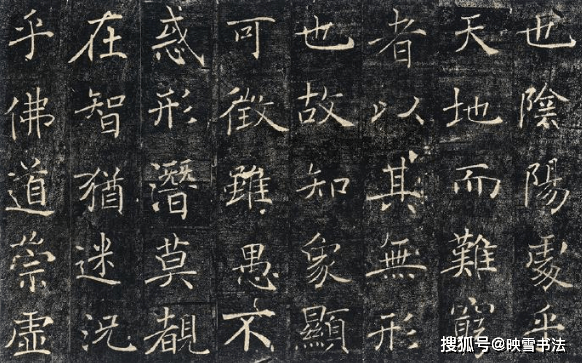 也陰陽處乎
天地而難窮
者以其無形
也故知象顯
可徵雖愚不
惑形潛莫覩
在智猶迷況
乎佛道崇虛
搜狐号@映雪书法